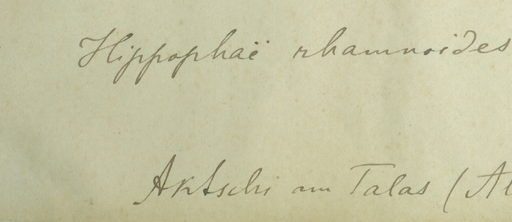 Hippophaë rhamnoides
Aktschi am Talas (Al